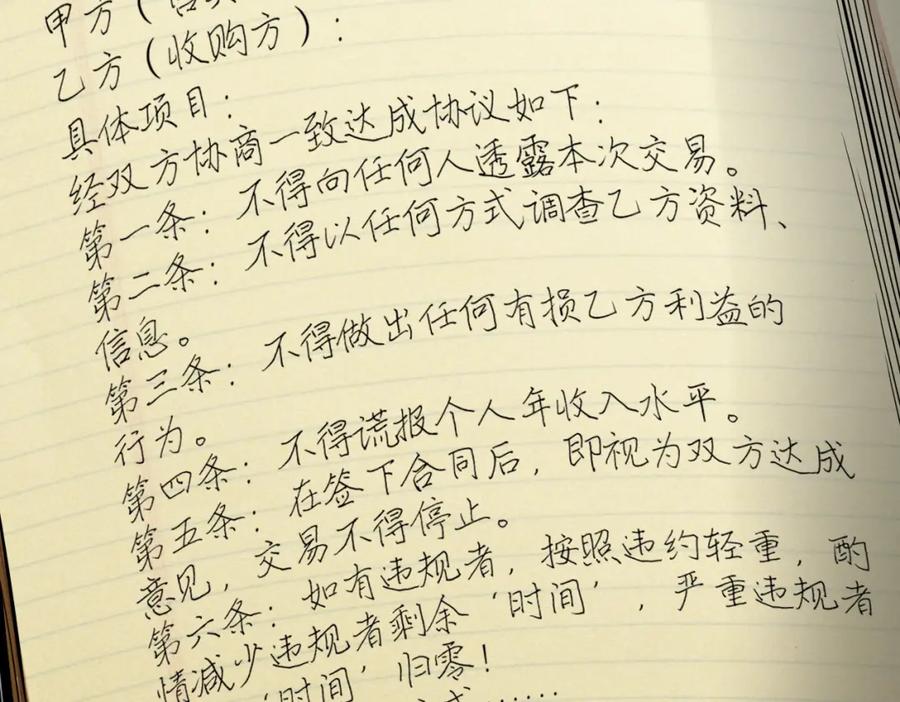 甲方（
乙方（收购方）：
具体项目：
经双方协商一致达成协议如下：
第一条：不得向任何人透露本次交易。
第二条：不得以任何方式调查乙方资料、
信息。
第三条：不得做出任何有损乙方利益的
行为。
第四条：不得谎报个人年收入水平。
第五条：在签下合同后，即视为双方达成
意见，交易不得停止。
第六条：如有违规者，按照违约轻重，酌
情减少违规者剩余‘时间’，严重违规者
‘时间’归零！
……